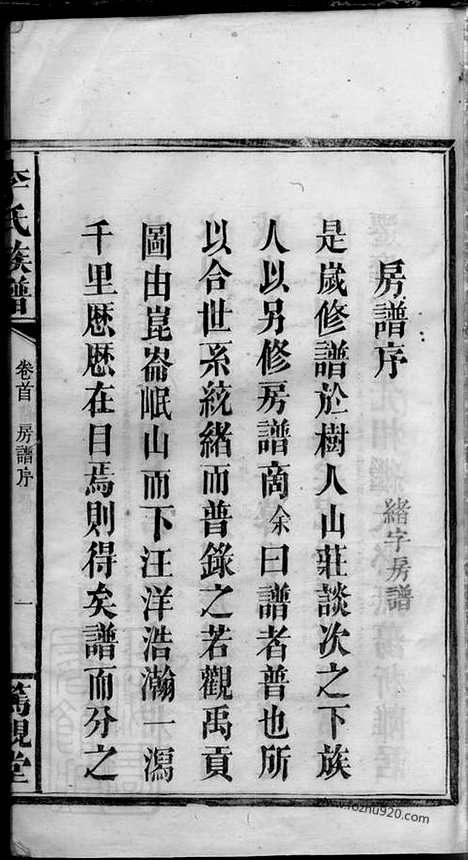 房譜序
緒字房譜
是歲修譜於樹人山莊談次之下族
人以另修房譜商余曰譜者普也所
以合世系統緒而普錄之若觀禹貢
圖由崑崙岷山而下汪洋浩瀚一瀉
千里歷歷在目焉則得矣譜而分之
李氏族譜
卷首 房譜序
一
篤親堂
www.fozhu920.com